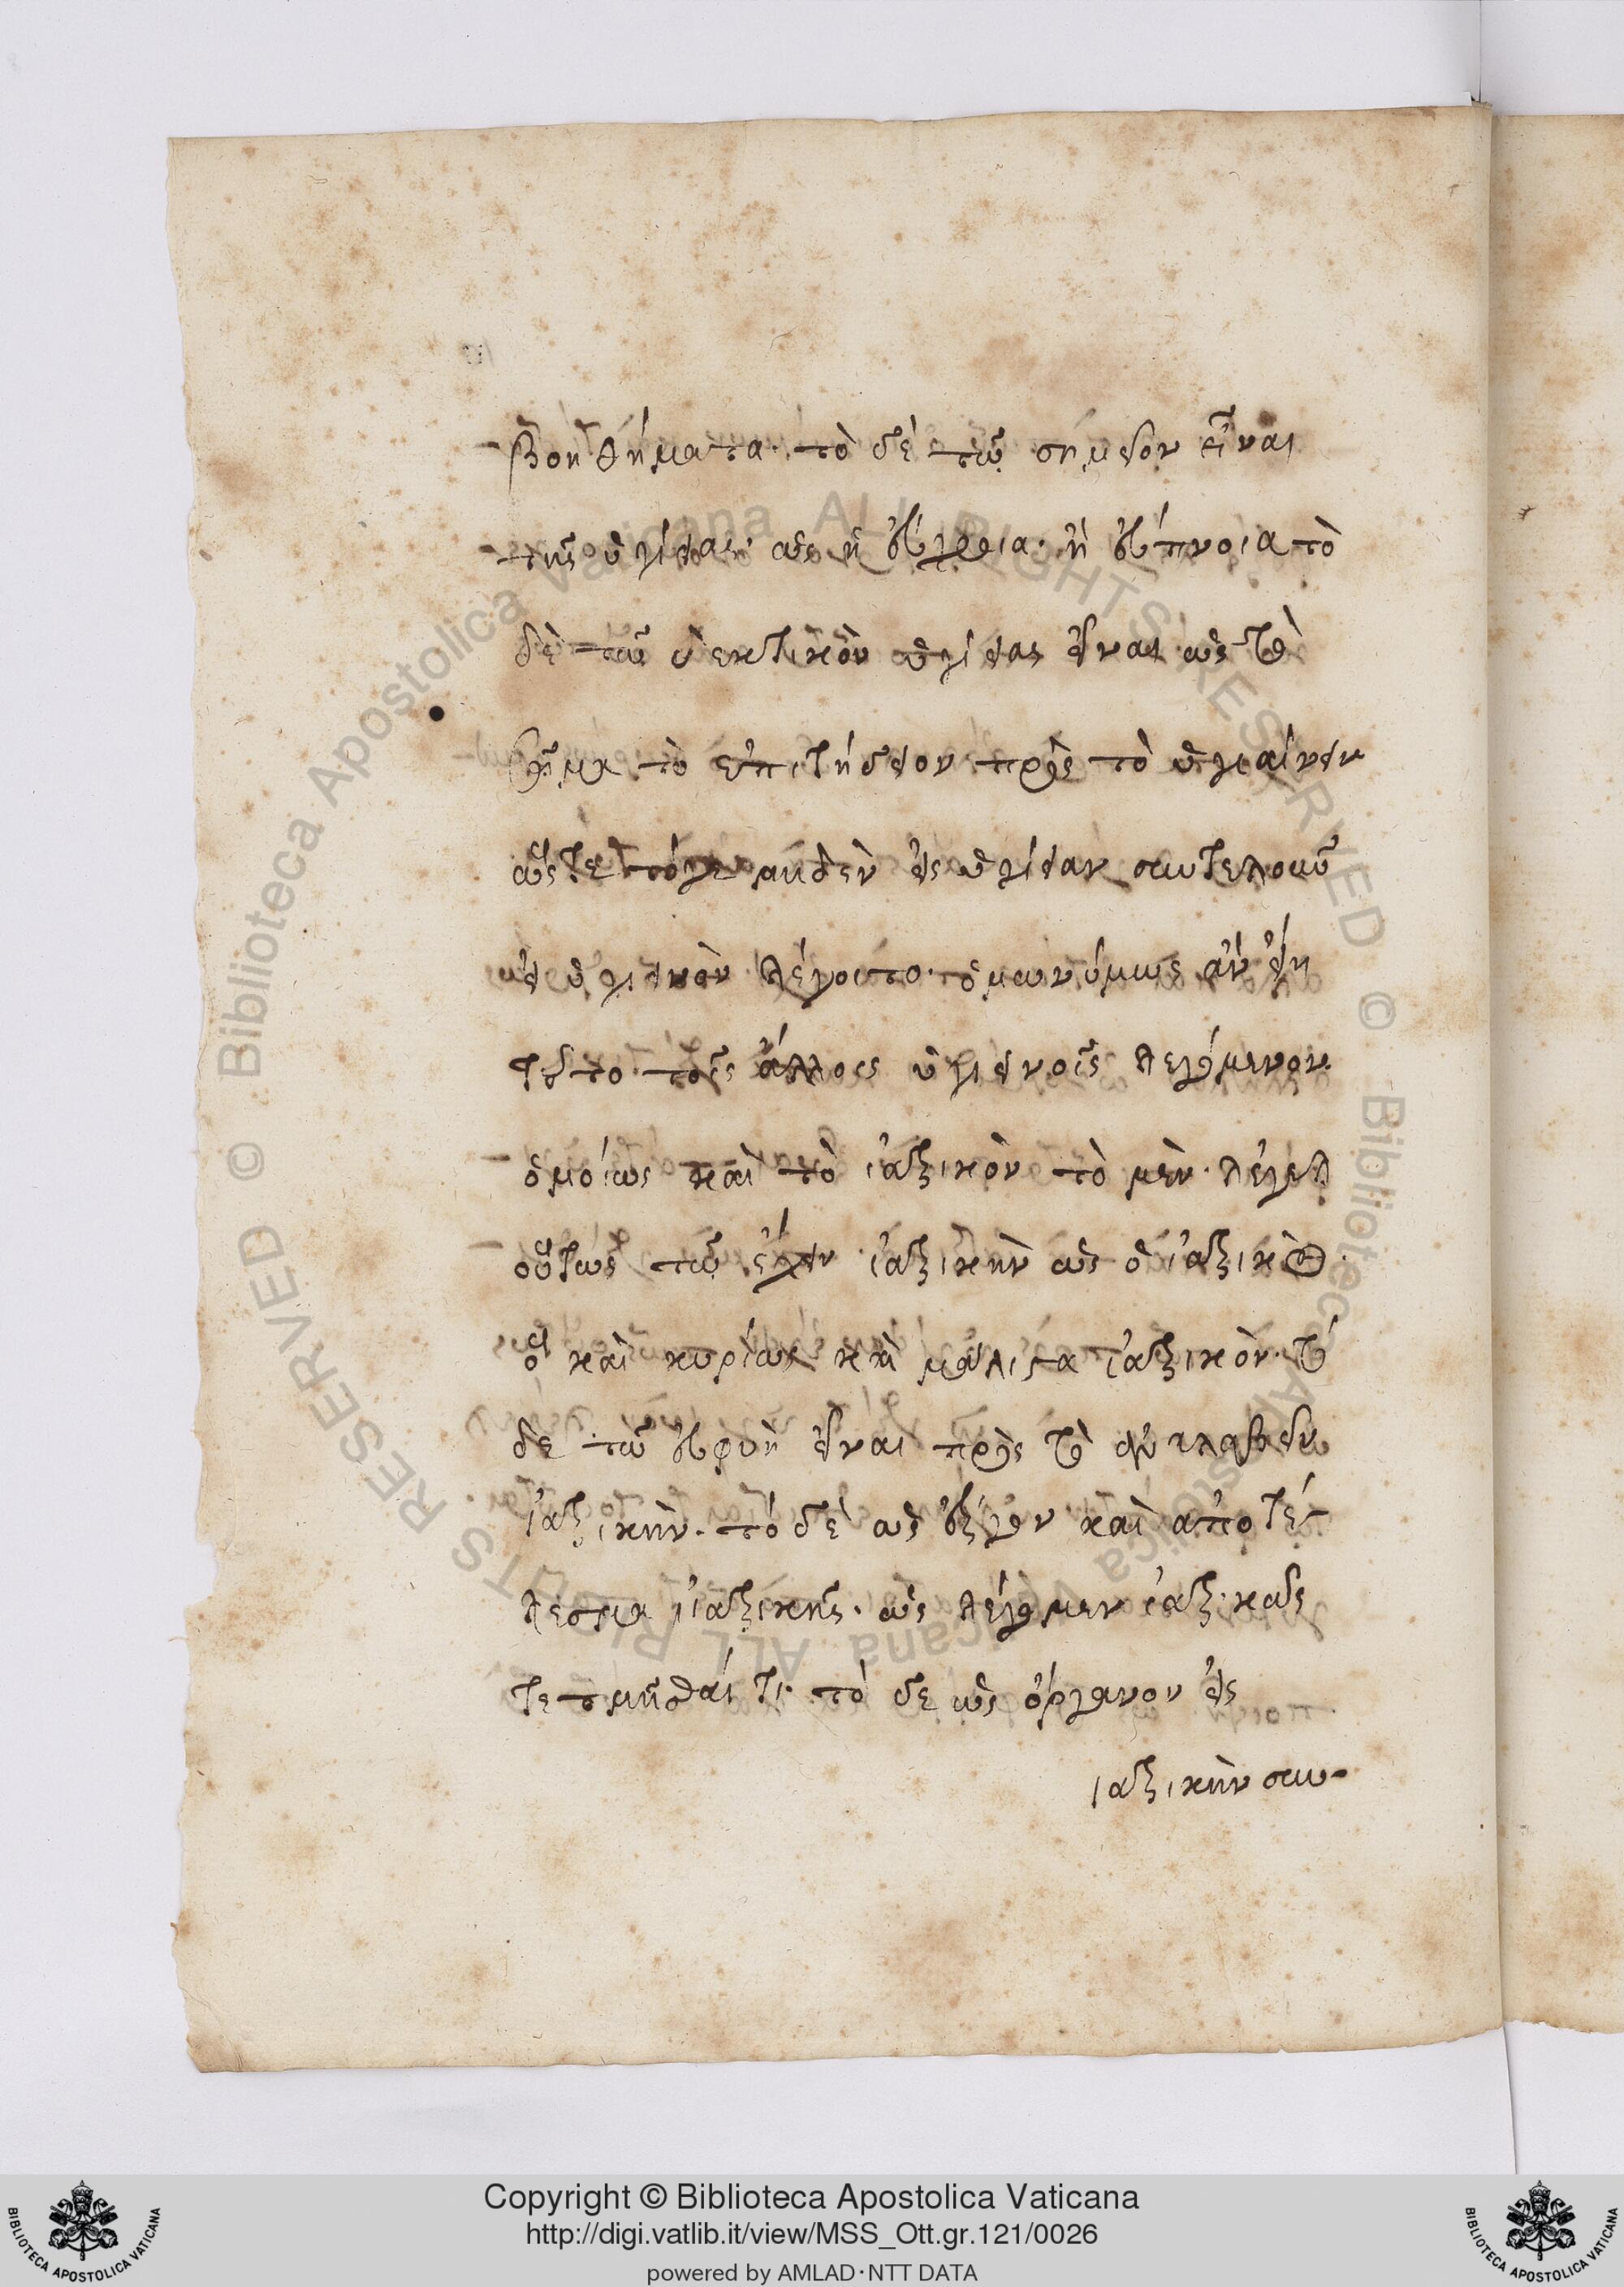 βοηθήματα· τὸ δὲ τῷ σημεῖον εἶναι
τῆς ὑγίειας· ὡς ἡ εὔχροια· ἡ εὔπνοια τὸ
δὲ τῷ δεκτικὸν ὑγίειας εἶναι ὡς τὸ
σῶμα τὸ ἐπιτήδειον πρὸς τὸ ὑγιαίνειν
ὥστε τόγε μηδὲν εἰς ὑγίειαν συντελοῦν
εἰ ὑγιεινὸν λέγοιτο· ὁμωνύμως ἂν εἴη
τοῦτο τοῖς ἄλλοις ὑγιεινοῖς λεγόμενον.
ὁμοίως καὶ τὸ ἰατρικὸν τὸ μὲν λέγεται
οὕτως τῷ ἔχειν ἰατρικὴν ὡς ὁ ἰατρικὸς.
ὃ καὶ κυρίως καὶ μάλιστα ἰατρικὸν· τὸ
δε τῷ εὐφυὴ εἶναι πρὸς τὸ ἀναλαβεῖν
ἰατρικὴν· τὸ δὲ ὡς ἔργον καὶ ἀποτέ-
λεσμα ἰατρικῆς· ὡς λέγομεν ἰατρικῶς
τετμῆσθαί τι· τὸ δε ὡς ὄργανον εἰς
ἰατρικὴν συν-
Copyright © Biblioteca Apostolica Vaticana
http://digi.vatlib.it/view/MSS_Ott.gr.121/0026
powered by AMLAD·NTT DATA
BIBLIOTECA APOSTOLICA VATICANA
BIBLIOTECA APOSTOLICA VATICANA
© Biblioteca Apostolica Vaticana ALL RIGHTS RESERVED
© Biblioteca Apostolica Vaticana ALL RIGHTS RESERVED